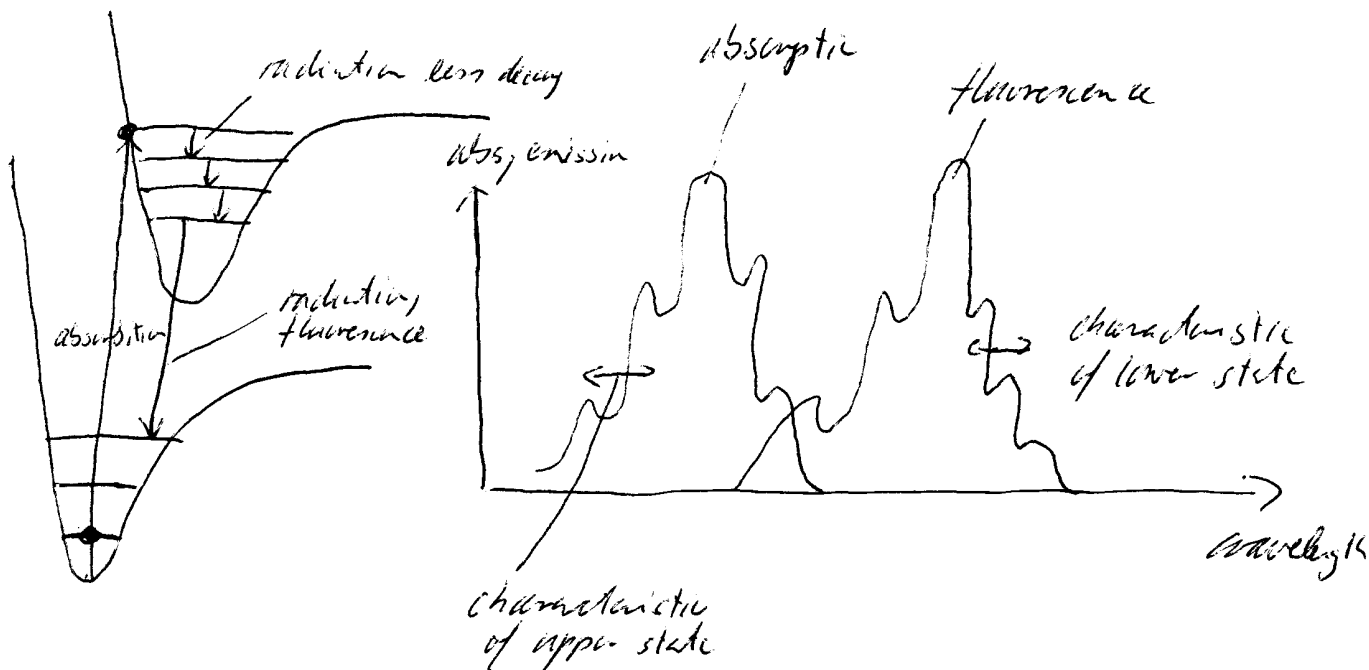 radiation less decay
absorption
radiation,
fluorescence
abs, emission
absorptio
fluorescence
characteristic
of lower state
wavelength
characteristic
of upper state